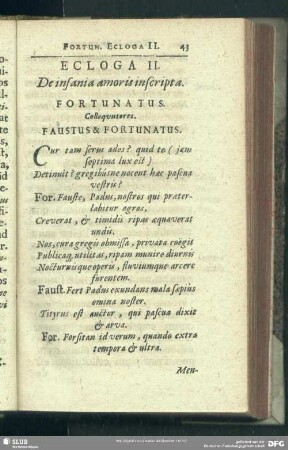 FORTUN. ECLOGA II. 43
ECLOGA II.
De insania amoris inscripta.
FORTUNATUS.
Colloquutores.
FAUSTUS & FORTUNATUS.
Cur tam serus ades? quid te (jam
septima lux est)
Detinuit? gregibusne nocent hæc pascua
vestris?
For. Fauste, Padus, nostros qui præter-
labitur agros,
Creverat, & timidis ripas æquaverat
undis.
Nos, cura gregis obmissa, privata coëgit
Publicaq; utilitas, ripam munire diurnis
Nocturnisque operis, fluviumque arcere
furentem.
Faust. Fert Padus exundans mala sæpius
omina noster.
Tityrus est auctor, qui pascua dixit
& arva.
For. Forsitan id verum, quando extra
tempora & ultra.
Men-
SLUB
DFG